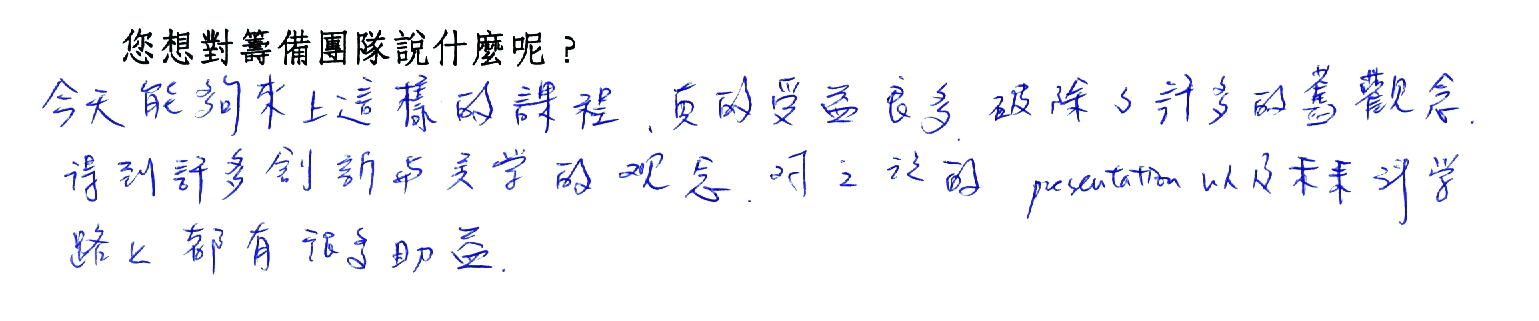 您想對籌備團隊說什麼呢？
今天能夠來上這樣的課程、真的受益良多.破除了許多的舊觀念.
得到許多創新与美学的观念.对之後的 presentation 以及未来科学
路上都有很多助益.